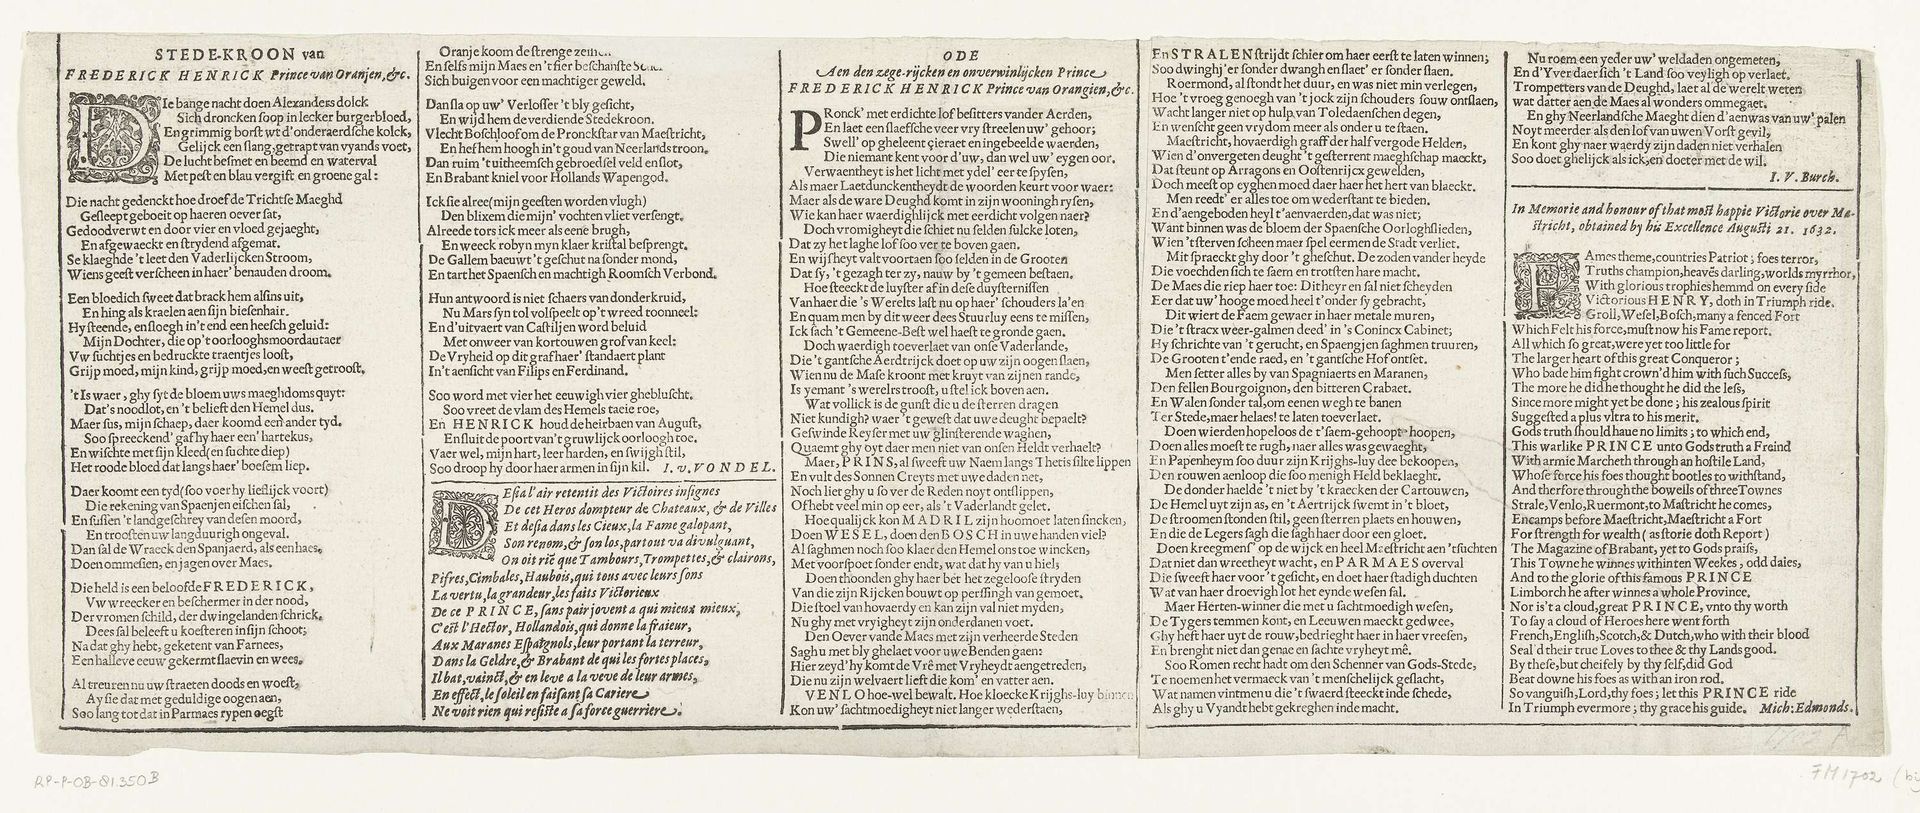 STEDE-KROON van
FREDERICK HENRICK Prince van Oranjen, &c.
DIe bange nacht doen Alexanders dolck
Sich droncken soop in lecker burgerbloed,
En grimmig borst wt d'onderaerdsche kolck,
Gelijck een slang, getrapt van vyands voet,
De lucht besmet en beemd en waterval
Met pest en blau vergift en groene gal:
Die nacht gedenckt hoe droef de Trichtse Maeghd
Gesleept geboeit op haeren oever sat,
Gedoodverwt en door vier en vloed gejaeght,
En afgewaeckt en strydend afgemat.
Se klaeghde 't leet den Vaderlijcken Stroom,
Wiens geest verscheen in haer' benauden droom.
Een bloedich sweet dat brack hem alsins uit,
En hing als kraelen aen sijn biesenhair.
Hy steende, en sloegh in't end een heesch geluid:
Mijn Dochter, die op't oorlooghsmoordautaer
Vw suchtjes en bedruckte traentjes loost,
Grijp moed, mijn kind, grijp moed, en weest getroost.
't Is waer, ghy syt de bloem uws maeghdoms quyt:
Dat's noodlot, en 't belieft den Hemel dus.
Maer sus, mijn schaep, daer koomd een ander tyd.
Soo spreeckend' gaf hy haer een' hartekus,
En wischte met sijn kleed (en suchte diep)
Het roode bloed dat langs haer' boesem liep.
Daer koomt een tyd (soo voer hy lieflijck voort)
Die rekening van Spaenjen eischen sal,
En sussen 't landgeschrey van desen moord,
En troosten uw langduurigh ongeval.
Dan sal de Wraeck den Spanjaerd, als een haes,
Doen ommesien, en jagen over Maes.
Die held is een beloofde FREDERICK,
Vw wreecker en beschermer in der nood,
Der vromen schild, der dwingelanden schrick.
Dees sal beleeft u koesteren in sijn schoot;
Na dat ghy hebt, geketent van Farnees,
Een halleve eeuw gekermt slaevin en wees.
Al treuren nu uw straeten doods en woest,
Ay sie dat met geduldige oogen aen,
Soo lang tot dat in Parmaes rypen oegst
Oranje koom de strenge
En selfs mijn Maes en 't fier beschanste
Sich buigen voor een machtiger geweld.
Dan sla op uw' Verlosser 't bly gesicht,
En wijd hem de verdiende Stedekroon.
Vlecht Boschloof om de Pronckstar van Maestricht,
En hef hem hoogh in't goud van Neerlands troon.
Dan ruim 't uitheemsch gebroedsel veld en slot,
En Brabant kniel voor Hollands Wapengod.
Ick sie alree (mijn geesten worden vlugh)
Den blixem die mijn' vochten vliet versengt.
Alreede tors ick meer als eene brugh,
En weeck robyn myn klaer kristal besprengt.
De Gallem baeuwt 't geschut na sonder mond,
En tart het Spaensch en machtigh Roomsch Verbond.
Hun antwoord is niet schaers van donderkruid,
Nu Mars syn tol volspeelt op 't wreed tooneel:
En d'uitvaert van Castiljen word beluid
Met onweer van kortouwen grof van keel:
De Vryheid op dit graf haer' standaert plant
In't aensicht van Filips en Ferdinand.
Soo word met vier het eeuwigh vier gheblust.
Soo vreet de vlam des Hemels taeie roe,
En HENRICK houd de heirbaen van August,
En sluit de poort van't gruwlijck oorlogh toe.
Vaer wel, mijn hart, leer harden, en swijgh stil,
Soo droop hy door haer armen in sijn kil. I. v. VONDEL.
DEsia l'air retentit des Victoires insignes
De cet Heros dompteur de Chateaux, & de Villes
Et desia dans les Cieux, la Fame galopant,
Son renom, & son los, partout va divulguant,
On oit riē que Tambours, Trompettes, & clairons,
Pifres, Cimbales, Haubois, qui tous avec leurs sons
La vertu, la grandeur, les faits Victorieux
De ce PRINCE, sans pair jovent a qui mieux mieux,
C'est l'Hector, Hollandois, qui donne la fraieur,
Aux Maranes Espagnols, leur portant la terreur,
Dans la Geldre, & Brabant de qui les fortes places,
Il bat, vainct, & en leve a la veve de leur armes,
En effect, le soleil en faisant sa Cariere
Ne voit rien qui resiste a sa force guerriere.
ODE
Aen den zege-rijcken en onverwinlijcken Prince
FREDERICK HENRICK Prince van Orangien, &c.
PRonck' met erdichte lof besitters vander Aerden,
En laet een slaefsche veer vry streelen uw' gehoor;
Swell' op gheleent çieraet en ingebeelde waerden,
Die niemant kent voor d'uw, dan wel uw' eygen oor.
Verwaentheyt is het licht met ydel' eer te spysen,
Als maer Laetdunckentheydt de woorden keurt voor waer:
Maer als de ware Deughd komt in zijn wooningh rysen,
Wie kan haer waerdighlijck met eerdicht volgen naer?
Doch vromigheyt die schiet nu selden sulcke loten,
Dat zy het laghe lof soo ver te boven gaen.
En wijsheyt valt voortaen soo selden in de Grooten
Dat sy, 't gezagh ter zy, nauw by 't gemeen bestaen.
Hoe steeckt de luyster af in dese duysternissen
Van haer die 's Werelts last nu op haer' schouders la'en
En quam men by dit weer dees Stuurluy eens te missen,
Ick sach 't Gemeene-Best wel haest te gronde gaen.
Doch waerdigh toeverlaet van onse Vaderlande,
Die 't gantsche Aerdtrijck doet op uw zijn oogen slaen,
Wien nu de Mase kroont met kruyt van zijnen rande,
Is yemant 's werelrs troost, u stel ick boven aen.
Wat vollick is de gunst die u de sterren dragen
Niet kundigh? waer 't geweft dat uwe deught bepaelt?
Geswinde Reyser met uw' glinsterende waghen,
Quaemt ghy oyt daer men niet van onsen Heldt verhaelt?
Maer, PRINS, al sweeft uw Naem langs Thetis silte lippen
En vult des Sonnen Creyts met uwe daden net,
Noch liet ghy u so ver de Reden noyt ontslippen,
Of hebt veel min op eer, als 't Vaderlandt gelet.
Hoe qualijck kon MADRIL zijn hoomoet laten sincken,
Doen WESEL, doen den BOSCH in uwe handen viel?
Al saghmen noch soo klaer den Hemel ons toe wincken,
Met voorspoet sonder endt, wat dat hy van u hiel;
Doen thoonden ghy haer bet het zegeloose stryden
Van die zijn Rijcken bouwt op perssingh van gemoet.
Die stoel van hovaerdy en kan zijn val niet myden,
Nu ghy met vryigheyt zijn onderdanen voet.
Den Oever vande Maes met zijn verheerde Steden
Sagh u met bly ghelaet voor uwe Benden gaen:
Hier zeyd' hy komt de Vrê met Vryheydt aengetreden,
Die nu zijn welvaert lieft die kom' en vatter aen.
VENLO hoe-wel bewalt. Hoe kloecke Krijghs-luy binnen
Kon uw' sachtmoedigheyt niet langer wederstaen,
En STRALEN strijdt schier om haer eerst te laten winnen;
Soo dwinghj' er sonder dwangh en slaet' er sonder slaen.
Roermond, al stondt het duur, en was niet min verlegen,
Hoe 't vroeg genoegh van 't jock zijn schouders souw ontslaen,
Wacht langer niet op hulp van Toledaenschen degen,
En wenscht geen vrydom meer als onder u te staen.
Maestricht, hovaerdigh graff der half vergode Helden,
Wien d'onvergeten deught 't gesterrent maeghschap maeckt,
Dat steunt op Arragons en Oostenrijcx gewelden,
Doch meest op eyghen moed daer haer het hert van blaeckt.
Men reedt' er alles toe om wederstant te bieden.
En d'aengeboden heyl t'aenvaerden, dat was niet;
Want binnen was de bloem der Spaensche Oorloghslieden,
Wien 't sterven scheen maer spel eermen de Stadt verliet.
Mit spraeckt ghy door 't gheschut. De zoden vander heyde
Die voechden sich te saem en trotsten hare macht.
De Maes die riep haer toe: Dit heyr en sal niet scheyden
Eer dat uw' hooge moed heel t'onder sy gebracht,
Dit wiert de Faem gewaer in haer metale muren,
Die 't stracx weer-galmen deed' in 's Conincx Cabinet;
Hy schrichte van 't gerucht, en Spaengjen saghmen truuren,
De Grooten t'ende raed, en 't gantsche Hof ontset.
Men setter alles by van Spagniaerts en Maranen,
Den fellen Bourgoignon, den bitteren Crabaet.
En Walen sonder tal, om eenen wegh te banen
Ter Stede, maer helaes! te laten toeverlaet.
Doen wierden hopeloos de t'saem-gehoopt' hoopen,
Doen alles moest te rugh, naer alles was gewaeght,
En Papenheym soo duur zijn Krijghs-luy dee bekoopen,
Den rouwen aenloop die soo menigh Held beklaeght.
De donder haelde 't niet by 't kraecken der Cartouwen,
De Hemel uyt zijn as, en 't Aertrijck swemt in 't bloet,
De stroomen stonden stil, geen sterren plaets en houwen,
En die de Legers sagh die sagh haer door een gloet.
Doen kreegmens' op de wijck en heel Maestricht aen 'tsuchten
Dat niet dan wreetheyt wacht, en PARMAES overval
Die sweeft haer voor 't gesicht, en doet haer stadigh duchten
Wat van haer droevigh lot het eynde wesen sal.
Maer Herten-winner die met u sachtmoedigh wesen,
De Tygers temmen kont, en Leeuwen maeckt gedwee,
Ghy heft haer uyt de rouw, bedrieght haer in haer vreesen,
En brenght niet dan genae en sachte vryheyt mê.
Soo Romen recht hadt om den Schenner van Gods-Stede,
Te noemen het vermaeck van 't menschelijck geslacht,
Wat namen vintmen u die 't swaerd steeckt inde schede,
Als ghy u Vyandt hebt gekreghen inde macht.
Nu roem een yeder uw' weldaden ongemeten,
En d'Yver daer sich 't Land soo veyligh op verlaet.
Trompetters van de Deughd, laet al de werelt weten
wat datter aen de Maes al wonders ommegaet.
En ghy Neerlandsche Maeght dien d'aenwas van uw' palen
Noyt meerder als den lof van uwen Vorst gevil,
En kont ghy naer waerdy zijn daden niet verhalen
Soo doet ghelijck als ick, en doeter met de wil.
I. V. Burch.
In Memorie and honour of that most happie Victorie over Ma-
stricht, obtained by his Excellence Augusti 21. 1632.
FAmes theme, countries Patriot; foes terror,
Truths champion, heavēs darling, worlds myrrhor,
With glorious trophies hemmd on every side
Victorious HENRY, doth in Triumph ride.
Groll, Wesel, Bosch, many a fenced Fort
Which Felt his force, must now his Fame report.
All which so great, were yet too little for
The larger heart of this great Conqueror;
Who bade him fight crown'd him with such Success,
The more he did he thought he did the less,
Since more might yet be done; his zealous spirit
Suggested a plus vltra to his merit.
Gods truth should haue no limits; to which end,
This warlike PRINCE unto Gods truth a Freind
With armie Marcheth through an hostile Land,
Whose force his foes thought bootles to withstand,
And therfore through the bowells of three Townes
Strale, Venlo, Ruermont, to Mastricht he comes,
Encamps before Maestricht, Maestricht a Fort
For strength for wealth (as storie doth Report)
The Magazine of Brabant, yet to Gods praise,
This Towne he winnes within ten Weekes, odd daies,
And to the glorie of this famous PRINCE
Limborch he after winnes a whole Province.
Nor is't a cloud, great PRINCE, vnto thy worth
To say a cloud of Heroes here went forth
French, English, Scotch, & Dutch, who with their blood
Seal'd their true Loves to thee & thy Lands good.
By these, but cheifely by thy self, did God
Beat downe his foes as with an iron rod.
So vanquish, Lord, thy foes; let this PRINCE ride
In Triumph evermore; thy grace his guide. Mich: Edmonds.
RP-P-OB-81.350B
FM 1702 (bij
1702 A